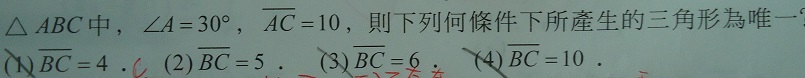 △ABC中，∠A=30°，AC=10，則下列何條件下所產生的三角形為唯一?
(1)BC=4．(2)BC=5．(3)BC=6．(4)BC=10．